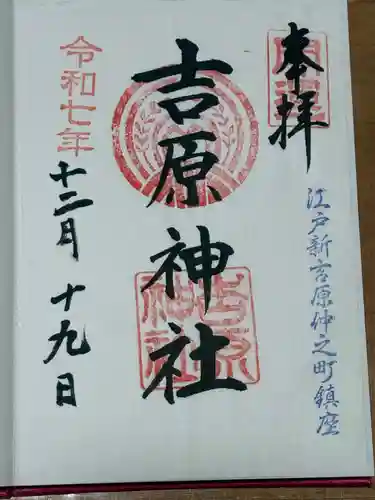 奉拝
江戸新吉原仲之町鎮座
吉原神社
令和七年
十二月十九日
吉原神社